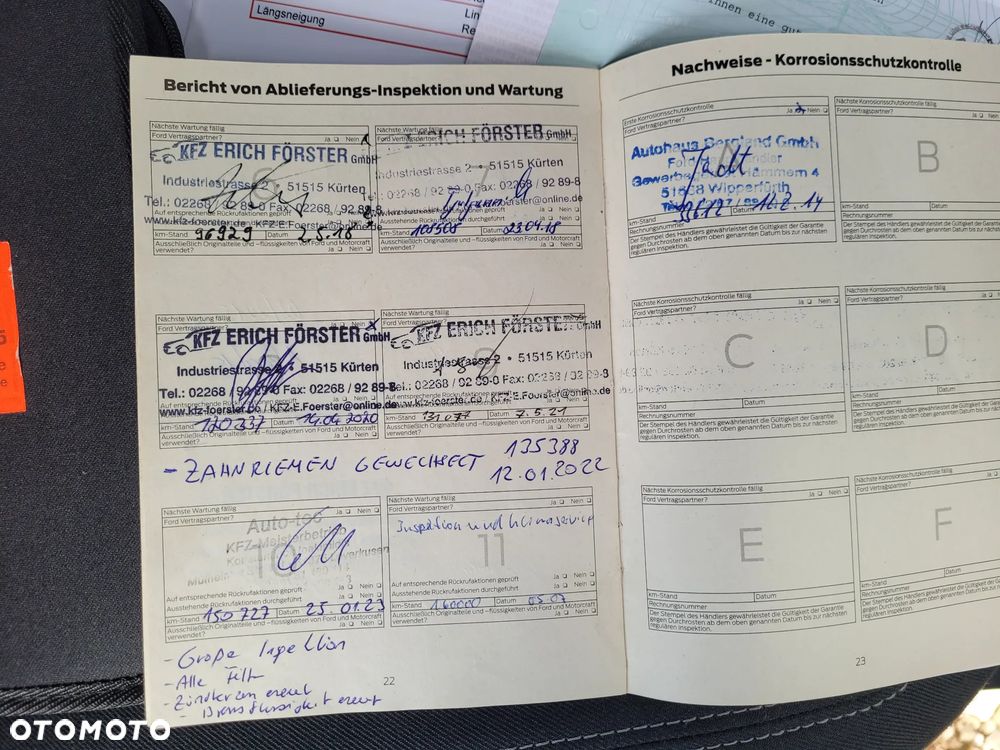 Längsneigung
Bericht von Ablieferungs-Inspektion und Wartung
Nächste Wartung fällig
Ford Vertragspartner? Ja Nein
KFZ ERICH FÖRSTER GmbH
Industriestrasse 2 • 51515 Kürten
Tel.: 02268 / 92 89-0 Fax: 02268 / 92 89-8
Auf entsprechende Rückrufaktionen geprüft
www.kfz-foerster.de / KFZ-E.Foerster@online.de
km-Stand 96929 Datum
Ausschließlich Originalteile und -flüssigkeiten von Ford und Motorcraft
verwendet? Ja Nein
Nächste Wartung fällig
Ford Vertragspartner? Ja Nein
ERICH FÖRSTER GmbH
Industriestrasse 2 • 51515 Kürten
Tel.: 02268 / 92 89-0 Fax: 02268 / 92 89-8
km-Stand 108508 Datum 23.04.18
Ausschließlich Originalteile und -flüssigkeiten von Ford und Motorcraft
verwendet? Ja Nein
Nächste Wartung fällig
Ford Vertragspartner?
KFZ ERICH FÖRSTER GmbH
Industriestrasse 2 • 51515 Kürten
Tel.: 02268 / 92 89-0 Fax: 02268 / 92 89-8
www.kfz-foerster.de / KFZ-E.Foerster@online.de
km-Stand 120337 Datum 14.04.2020
Ausschließlich Originalteile und -flüssigkeiten von Ford und Motorcraft
verwendet? Ja Nein
Nächste Wartung fällig
Ford Vertragspartner?
KFZ ERICH FÖRSTER GmbH
Industriestrasse 2 • 51515 Kürten
Tel.: 02268 / 92 89-0 Fax: 02268 / 92 89-8
www.kfz-foerster.de / KFZ-E.Foerster@online.de
km-Stand 131077 Datum 7.5.21
Ausschließlich Originalteile und -flüssigkeiten von Ford und Motorcraft
verwendet? Ja Nein
- ZAHNRIEMEN GEWECHSELT 135388
12.01.2022
Nächste Wartung fällig
Ford Vertragspartner? Ja Nein
Auto-tec
KFZ-Meisterbetrieb
10
Auf entsprechende Rückrufaktionen geprüft Ja Nein
Ausstehende Rückrufaktionen durchgeführt Ja Nein
km-Stand 150727 Datum 25.01.23
Ausschließlich Originalteile und -flüssigkeiten von Ford und Motorcraft
verwendet? Ja Nein
Nächste Wartung fällig
Ford Vertragspartner? Ja Nein
Inspektion und Klimaservice
11
Auf entsprechende Rückrufaktionen geprüft Ja Nein
Ausstehende Rückrufaktionen durchgeführt Ja Nein
km-Stand 160000 Datum
Ausschließlich Originalteile und -flüssigkeiten von Ford und Motorcraft
verwendet? Ja Nein
- Große
- Alle
22
Nachweise - Korrosionsschutzkontrolle
Erste Korrosionsschutzkontrolle
Ford Vertragspartner? Ja Nein
Autohaus Bergland GmbH
51688 Wipperfürth
km-Stand Datum
Rechnungsnummer
Der Stempel des Händlers gewährleistet die Gültigkeit der Garantie
gegen Durchrosten ab dem oben genannten Datum bis zur nächsten
regulären Inspektion.
Nächste Korrosionsschutzkontrolle fällig
Ford Vertragspartner? Ja
B
km-Stand Datum
Rechnungsnummer
Der Stempel des Händlers gewährleistet die Gültigkeit der Garantie
gegen Durchrosten ab dem oben genannten Datum bis zur nächsten
regulären Inspektion.
Nächste Korrosionsschutzkontrolle fällig
Ford Vertragspartner? Ja Nein
C
km-Stand Datum
Rechnungsnummer
Der Stempel des Händlers gewährleistet die Gültigkeit der Garantie
gegen Durchrosten ab dem oben genannten Datum bis zur nächsten
regulären Inspektion.
Nächste Korrosionsschutzkontrolle fällig
Ford Vertragspartner? Ja
D
km-Stand Datum
Rechnungsnummer
Der Stempel des Händlers gewährleistet die Gültigkeit der Garantie
gegen Durchrosten ab dem oben genannten Datum bis zur nächsten
regulären Inspektion.
Nächste Korrosionsschutzkontrolle fällig
Ford Vertragspartner? Ja Nein
E
km-Stand Datum
Rechnungsnummer
Der Stempel des Händlers gewährleistet die Gültigkeit der Garantie
gegen Durchrosten ab dem oben genannten Datum bis zur nächsten
regulären Inspektion.
Nächste Korrosionsschutzkontrolle fällig
Ford Vertragspartner?
F
km-Stand Datum
Rechnungsnummer
Der Stempel des Händlers gewährleistet die Gültigkeit der Garantie
gegen Durchrosten ab dem oben genannten Datum bis zur
regulären Inspektion.
23
OTOMOTO